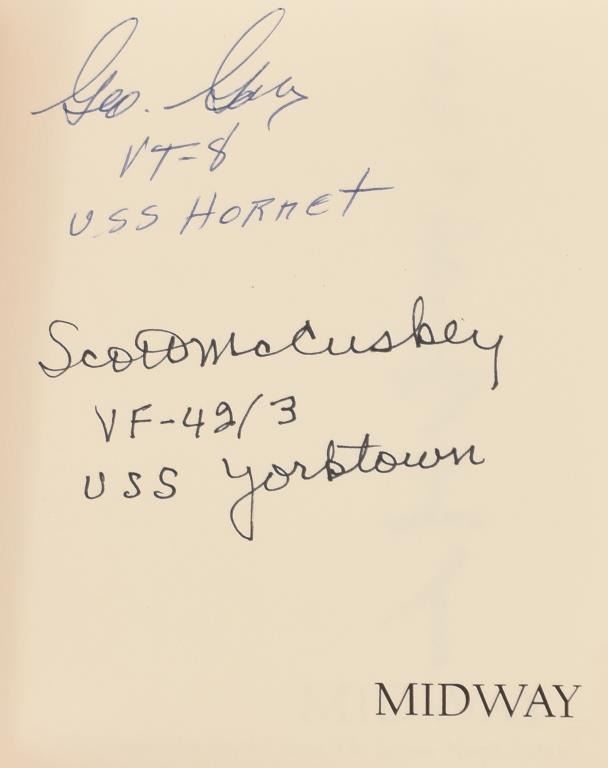 Geo. Gay
VT-8
USS HORNET
Scott McCuskey
VF-42/3
USS Yorktown
MIDWAY